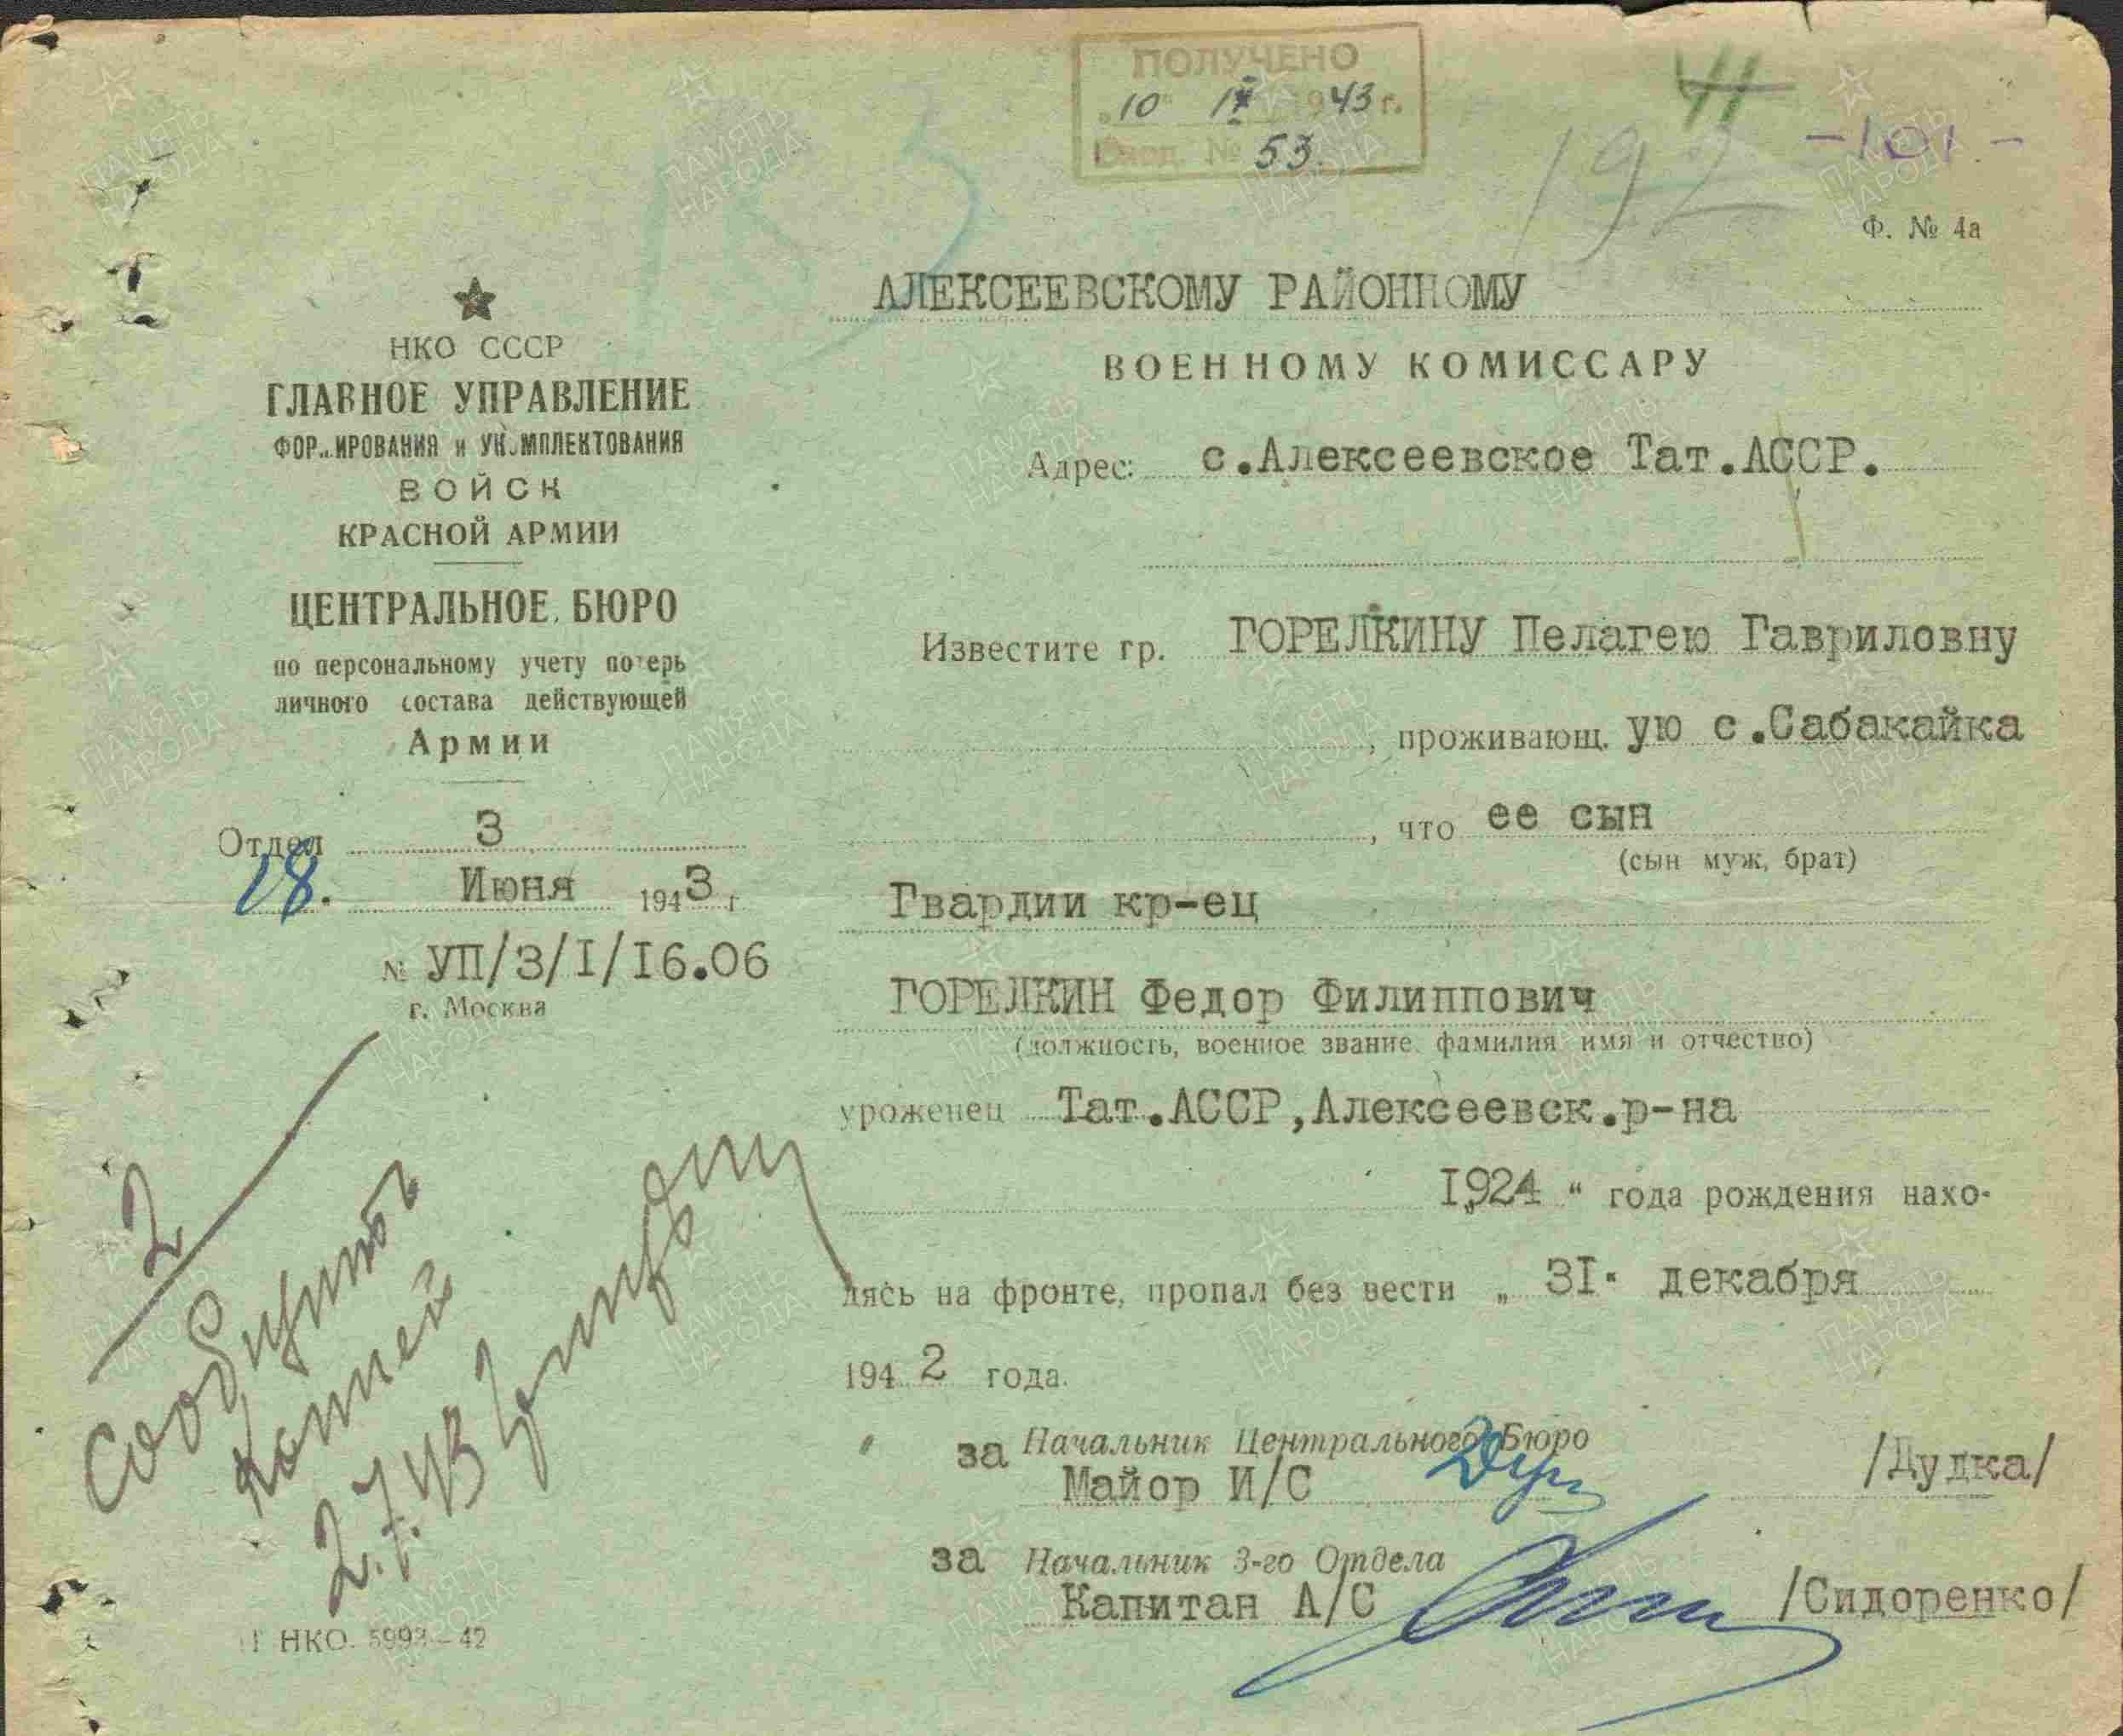 ПОЛУЧЕНО
"10" IX 1943 г.
Вход. № 53.
41
192
-101-
Ф. № 4а
НКО СССР
ГЛАВНОЕ УПРАВЛЕНИЕ
ФОРМИРОВАНИЯ и УКОМПЛЕКТОВАНИЯ
ВОЙСК
КРАСНОЙ АРМИИ
ЦЕНТРАЛЬНОЕ БЮРО
по персональному учету потерь
личного состава действующей
Армии
Отдел 3
28. Июня 1943 г
№ УП/3/I/I6.06
г. Москва
2
Сообщить
2.7.43
П НКО. 5993—42
АЛЕКСЕЕВСКОМУ РАЙОННОМУ
ВОЕННОМУ КОМИССАРУ
Адрес: с.Алексеевское Тат.АССР.
Известите гр. ГОРЕЛКИНУ Пелагею Гавриловну
, проживающ. ую с.Сабакайка
, что ее сын
(сын муж, брат)
Гвардии кр-ец
ГОРЕЛКИН Федор Филиппович
(должность, военное звание фамилия имя и отчество)
уроженец Тат.АССР,Алексеевск.р-на
I924 " года рождения нахо-
дясь на фронте, пропал без вести „ 3I" декабря
1942 года.
за Начальник Центрального Бюро
Майор И/С /Дудка/
за Начальник 3-го Отдела
Капитан А/С /Сидоренко/
ПАМЯТЬ НАРОДА